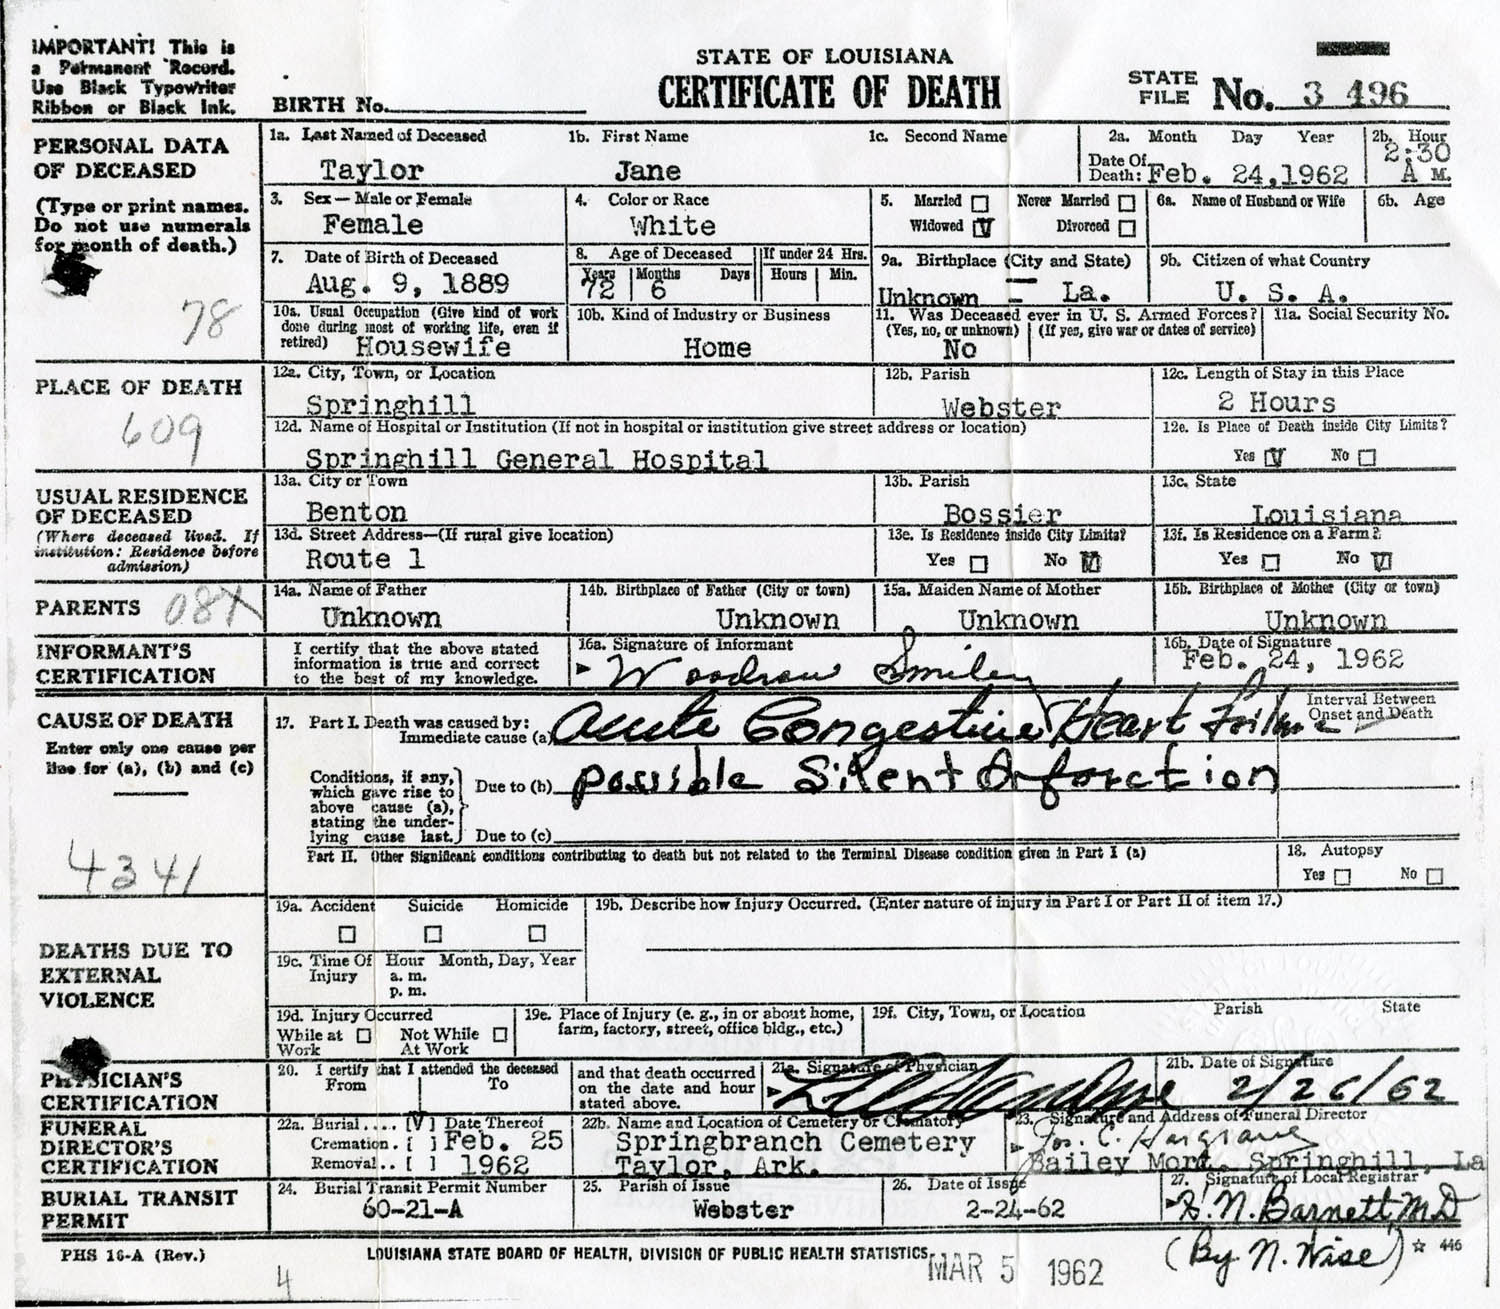 IMPORTANT! This is
a Permanent Record.
Use Black Typewriter
Ribbon or Black Ink.
BIRTH No.
STATE OF LOUISIANA
CERTIFICATE OF DEATH
STATE FILE No. 3 496
PERSONAL DATA
OF DECEASED
(Type or print names.
Do not use numerals
for month of death.)
78
1a. Last Named of Deceased 1b. First Name 1c. Second Name 2a. Month Day Year 2b. Hour
Taylor Jane Date Of Death: Feb. 24, 1962 2:30 A M.
3. Sex — Male or Female 4. Color or Race 5. Married Never Married 6a. Name of Husband or Wife 6b. Age
Female White Widowed V Divorced
7. Date of Birth of Deceased 8. Age of Deceased If under 24 Hrs. 9a. Birthplace (City and State) 9b. Citizen of what Country
Years Months Days Hours Min.
Aug. 9, 1889 72 6 Unknown — La. U. S. A.
10a. Usual Occupation (Give kind of work
done during most of working life, even if
retired) Housewife
10b. Kind of Industry or Business
Home
11. Was Deceased ever in U. S. Armed Forces?
(Yes, no, or unknown) (If yes, give war or dates of service)
No
11a. Social Security No.
PLACE OF DEATH
609
12a. City, Town, or Location 12b. Parish 12c. Length of Stay in this Place
Springhill Webster 2 Hours
12d. Name of Hospital or Institution (If not in hospital or institution give street address or location) 12e. Is Place of Death inside City Limits?
Springhill General Hospital Yes V No
USUAL RESIDENCE
OF DECEASED
(Where deceased lived. If
institution: Residence before
admission)
13a. City or Town 13b. Parish 13c. State
Benton Bossier Louisiana
13d. Street Address—(If rural give location) 13e. Is Residence inside City Limits? 13f. Is Residence on a Farm?
Route 1 Yes No V Yes No V
PARENTS 08X
14a. Name of Father 14b. Birthplace of Father (City or town) 15a. Maiden Name of Mother 15b. Birthplace of Mother (City or town)
Unknown Unknown Unknown Unknown
INFORMANT'S
CERTIFICATION
I certify that the above stated
information is true and correct
to the best of my knowledge.
16a. Signature of Informant
Woodrow Smiley
16b. Date of Signature
Feb. 24, 1962
CAUSE OF DEATH
Enter only one cause per
line for (a), (b) and (c)
4341
17. Part I. Death was caused by:
Immediate cause (a) Acute Congestive Heart Failure
Interval Between
Onset and Death
Conditions, if any,
which gave rise to
above cause (a),
stating the under-
lying cause last.
Due to (b) possible Silent Infarction
Due to (c)
Part II. Other Significant conditions contributing to death but not related to the Terminal Disease condition given in Part I (a)
18. Autopsy
Yes No
DEATHS DUE TO
EXTERNAL
VIOLENCE
19a. Accident Suicide Homicide
19b. Describe how Injury Occurred. (Enter nature of injury in Part I or Part II of item 17.)
19c. Time Of Injury Hour Month, Day, Year
a. m.
p. m.
19d. Injury Occurred
While at Work Not While At Work
19e. Place of Injury (e. g., in or about home,
farm, factory, street, office bldg., etc.)
19f. City, Town, or Location Parish State
PHYSICIAN'S
CERTIFICATION
20. I certify that I attended the deceased
From To
and that death occurred
on the date and hour
stated above.
21a. Signature of Physician
21b. Date of Signature
2/26/62
FUNERAL
DIRECTOR'S
CERTIFICATION
22a. Burial.... [V] Date Thereof
Cremation. [ ] Feb. 25
Removal.. [ ] 1962
22b. Name and Location of Cemetery or Crematory
Springbranch Cemetery
Taylor, Ark.
23. Signature and Address of Funeral Director
Jos. C. Hargrave
Bailey Mort. Springhill, La
BURIAL TRANSIT
PERMIT
24. Burial Transit Permit Number
60-21-A
25. Parish of Issue
Webster
26. Date of Issue
2-24-62
27. Signature of Local Registrar
N. Barnett MD
(By N. Wise)
PHS 16-A (Rev.)
4
LOUISIANA STATE BOARD OF HEALTH, DIVISION OF PUBLIC HEALTH STATISTICS
MAR 5 1962
☆ 446